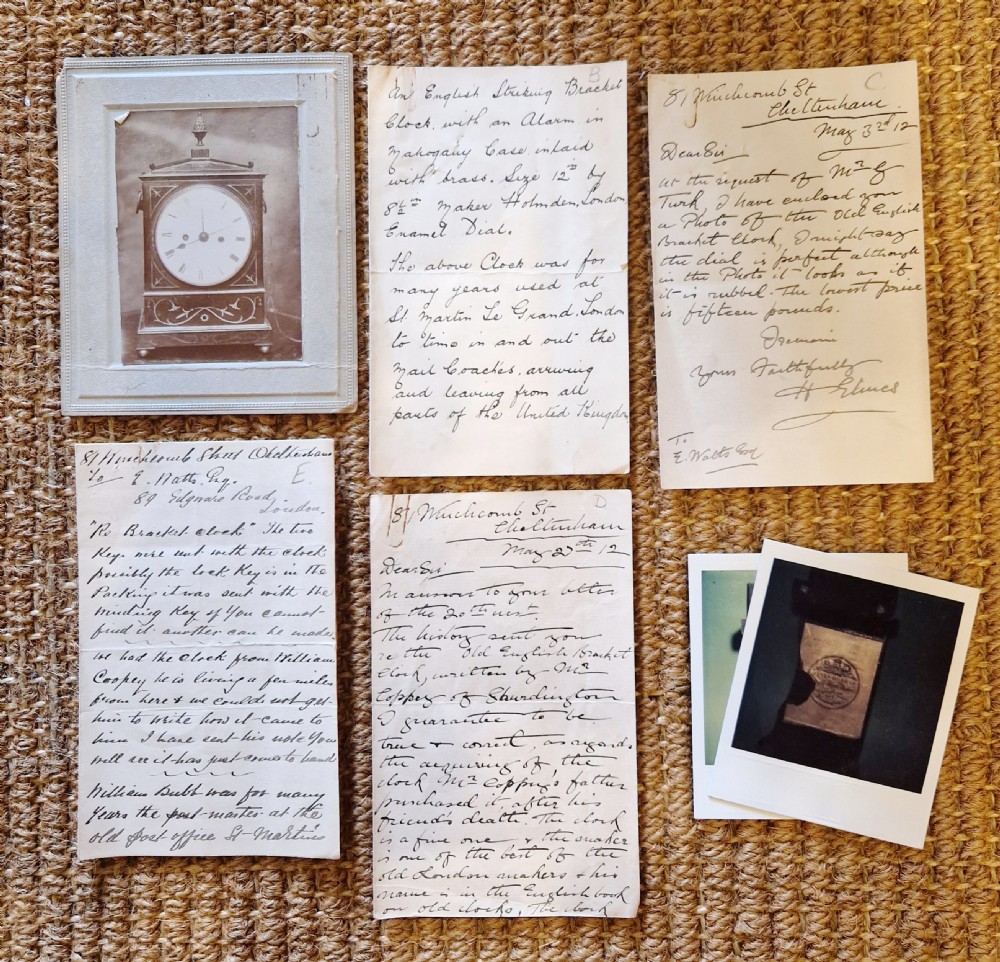 B
An English Striking Bracket
Clock, with an Alarm in
Mahogany Case, inlaid
with brass. Size 12 ins by
8½ ins Maker Holmden, London
Enamel Dial.
The above Clock was for
many years used at
St. Martin Le Grand, London
to time in and out the
Mail Coaches, arriving
and leaving from all
parts of the United Kingdom
C
81 Winchcomb St
Cheltenham.
May 3rd 12
Dear Sir
At the request of Mr G
Turk, I have enclosed you
a Photo of the Old English
Bracket Clock, I might say
the dial is perfect although
in the Photo it looks as if
it is rubbed. The lowest price
is fifteen pounds.
I remain
Yours Faithfully
H
To
E. Watts Esq
E.
81 Winchcomb Street Cheltenham
To E. Watts. Esq.
89 Edgware Road,
London.
"Re Bracket Clock" The two
Keys were sent with the clock
possibly the lock Key is in the
Packing it was sent with the
Winding Key if You cannot
find it another can be made.
we had the Clock from William
Coopey he is living a few miles
from here & we could not get
him to write how it came to
him I have sent his note You
will see it has just come to hand
William Bubb was for many
Years the post-master at the
old post office St Martins
D
81 Winchcomb St
Cheltenham
May 27th 12
Dear Sir
In answer to your letter
of the 20th inst.
The history sent you
re the Old English Bracket
Clock, written by Mr
Coppey of Shurdington
I guarantee to be
true & correct, as regards
the acquiring of the
clock, Mr Coppey's father
purchased it after his
friend's death. The clock
is a fine one & the maker
is one of the best of the
old London makers & his
name is in the English book
on old clocks. The clock